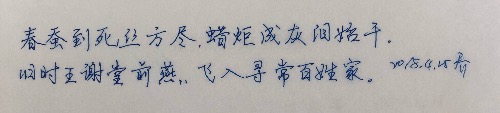 春蚕到死丝方尽,蜡炬成灰泪始干.
旧时王谢堂前燕,飞入寻常百姓家。2015.4.15